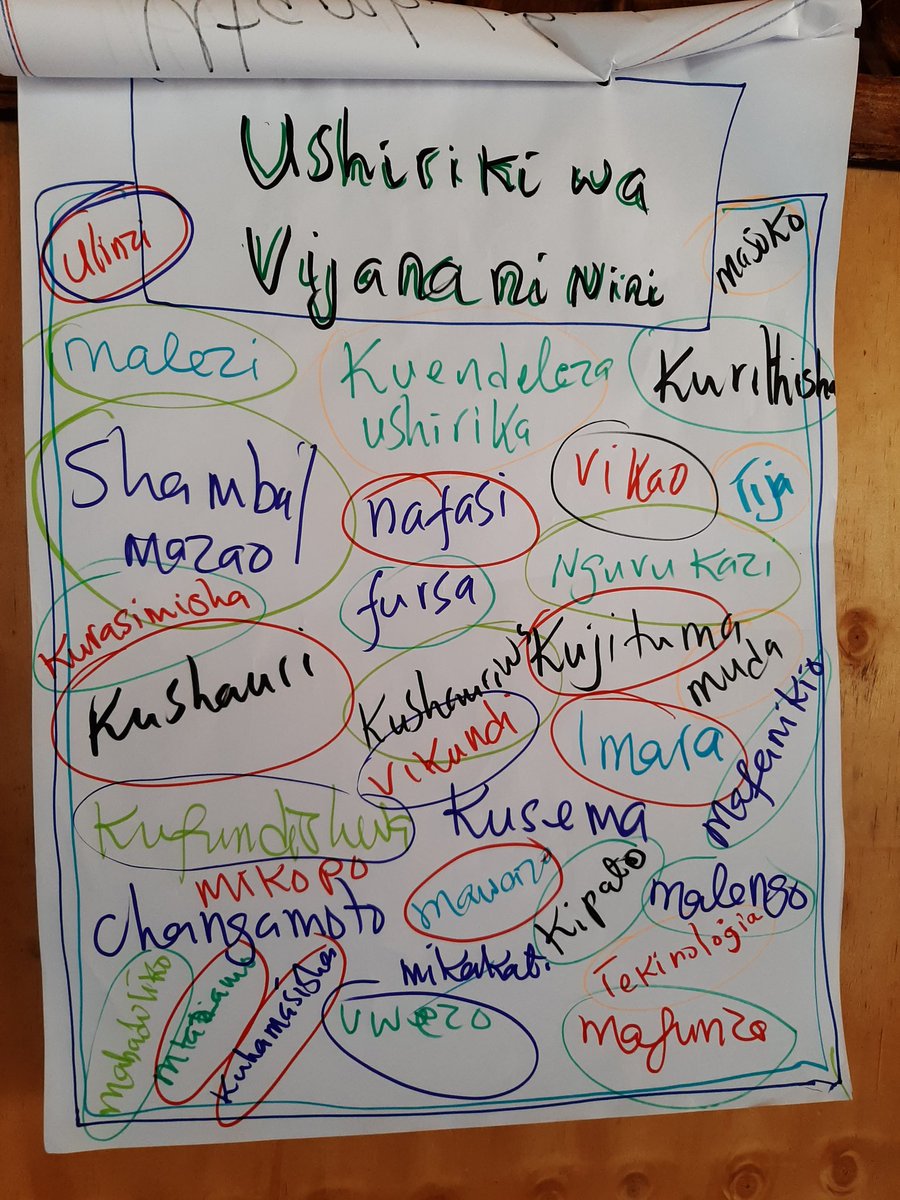 Ushiriki wa
Vijana ni Nini
Ulinzi
masoko
malezi
Kuendeleza
ushirika
Kurithisha
Shamba/
mazao
nafasi
vikao
Tija
fursa
Nguvu kazi
Kurasimisha
Kushauri
Kushauriwa
Kujituma
muda
vikundi
Imara
mafanikio
Kufundishwa
Kusema
mikopo
Changamoto
mawazo
Kipato
malengo
mikakati
Tekinologia
mabadiliko
Kuhamasisha
uwezo
mafunzo